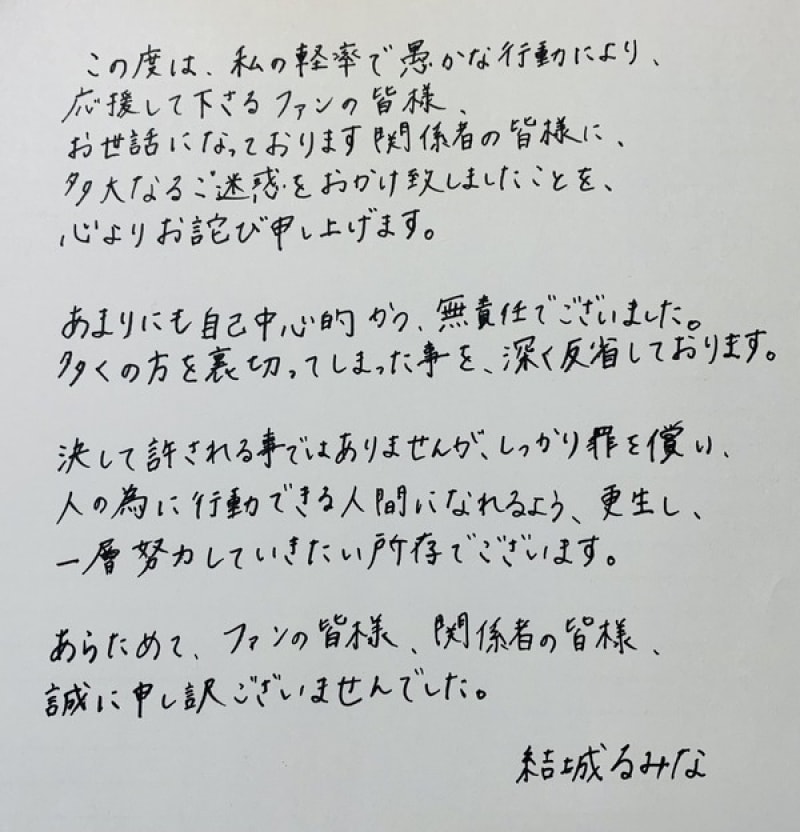 この度は、私の軽率で愚かな行動により、
応援して下さるファンの皆様、
お世話になっております関係者の皆様に、
多大なるご迷惑をおかけ致しましたことを、
心よりお詫び申し上げます。
あまりにも自己中心的かつ、無責任でございました。
多くの方を裏切ってしまった事を、深く反省しております。
決して許される事ではありませんが、しっかり罪を償い、
人の為に行動できる人間になれるよう、更生し、
一層努力していきたい所存でございます。
あらためて、ファンの皆様、関係者の皆様、
誠に申し訳ございませんでした。
結城るみな